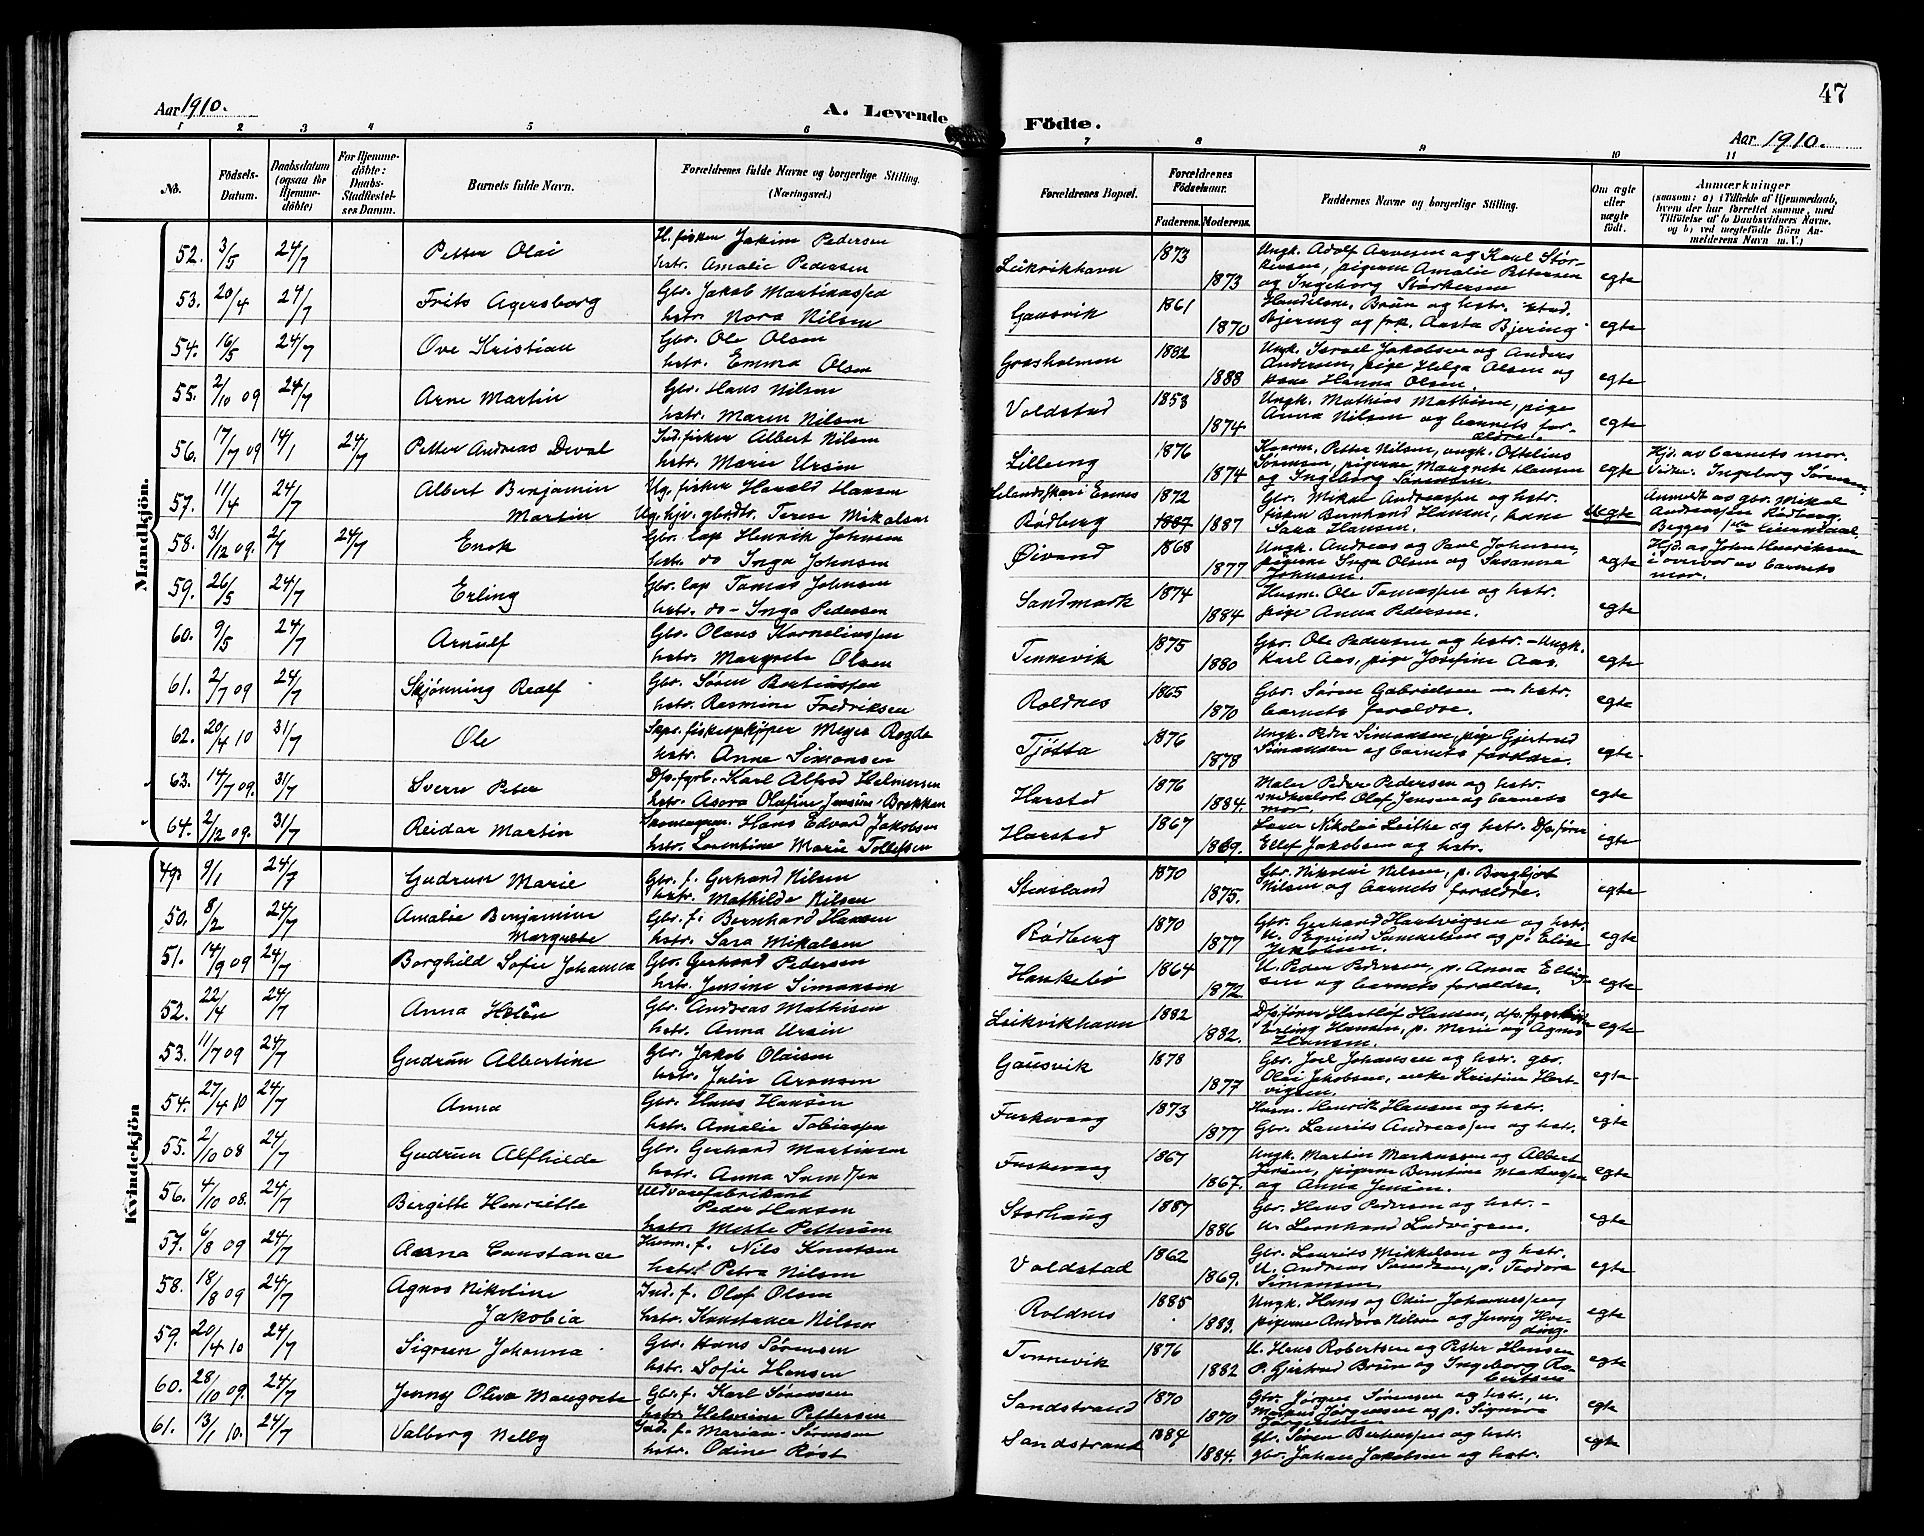 Aar 1910.
A. Levende
Födte.
47
Aar 1910.
1 2 3 4 5 6 7 8 9 10 11
No. Födsels-Datum. Daabsdatum (ogsaa for Hjemme-döbte) For Hjemme-döbte: Daabs-Stadfæstel-ses Datum. Barnets fulde Navn. Forældrenes fulde Navne og borgerlige Stilling. (Næringsvei.) Forældrenes Bopæl. Forældrenes Födselsaar. Faderens. Moderens. Faddernes Navne og borgerlige Stilling. Om ægte eller uægte født. Anmærkninger (saasom: a) i Tilfælde af Hjemmedaab, hvem der har forrettet samme, med Tilföielse af to Daabsvidners Navne, og b) ved uægtefödte Börn Anmelderens Navn m. V.)
Mandkjön.
52. 3/5 24/7 Petter Olai H. fisker Jakim Pedersen
hstr. Amalie Pedersen Leikvikhavn 1873 1873 Ungk. Adolf Arnesen og Karl Stör-
kersen, pigerne Amalie Pettersen
og Ingeborg Størkersen egte
53. 20/4 24/7 Frits Agersborg Gbr. Jakob Martinussen
hstr. Nora Nilsen Gausvik 1861 1870 Handelsm. Brün og hstr. stud.
Bjering og frk. Aasta Bjering egte
54. 16/5 24/7 Ove Kristian Gbr. Ole Olsen
hstr. Emma Olsen Grasholmen 1882 1888 Ungk. Israel Jakobsen og Anders
Andersen, pige Helga Olsen og
kone Hanna Olsen. egte
55. 2/10 09 24/7 Arne Martin Gbr. Hans Nilsen
hstr. Maren Nilsen Voldstad 1858 1874 Ungk. Mathias Mathisen, pige
Anna Nilsen og barnets for-
ældre. egte
56. 17/7 09 14/1 24/7 Petter Andreas Deval Ind. fisker Albert Nilsen
hstr. Marie Ursin Lilleng 1876 1874 Kaarm. Petter Nilsen, ungk. Ottelius
Sørensen, pigerne Margrete Hansen
og Ingeborg Sørensen. egte Hjd. av barnets mor.
Ingeborg Sørensen.
57. 11/4 24/7 Albert Benjamin
Martin Ug. fisker Harald Hansen
Ug. hjv. gbrdtr. Terese Mikalsen Evenes
Rödberg 1872 1887 1887 Gbr. Mikal Andreassen og hstr.
fisker Bernhard Hansen, kone
Sara Hansen. Uegte Anmeldt av gbr. Mikal
Andreassen Rødberg.
Begges 1ste
58. 31/12 09. 2/7 24/7 Enok Gbr. lap Henrik Johnsen
hstr. do Inga Johnsen Øivand 1868 1877 Ungk. Andreas og Paul Johnsen,
pigerne Inga Olsen og Susanna
Johnsen. egte Hjd. av John Henriksen
i overvær av barnets
mor.
59. 26/5 24/7 Erling Gbr. lap Tomas Johnsen
hstr. do – Inga Pedersen Sandmark 1874 1884 Husm. Ole Tomassen og hstr.
pige Anna Pedersen. egte
60. 9/5 24/7 Arnulf Gbr. Olaus Korneliussen
hstr. Margrete Olsen Tennevik 1875 1880 Gbr. Ole Pedersen og hstr. – Ungk.
Karl Aas, pige Josefine Aas. egte
61. 2/7 09 24/7 Skjønning Realf Gbr. Søren Bertiussen
hstr. Rasmine Fredriksen Roldnes 1865 1870 Gbr. Søren Gabrielsen – hstr.
barnets forældre. egte
62. 20/4 10 31/7 Ole Skpr. fiskeopkjøper Meyer Rogde
hstr. Anne Simonsen Tjøtta 1876 1878 Ungk. Peder Simonsen, pige Gjertrud
Simonsen og barnets forældre. egte
63. 14/7 09. 31/7 Sverre Peter Dfs. fyrb. Karl Alfred Helmersen
hstr. Asora Olufine Jensine Brekken Harstad 1876 1884. Maler Peder Pedersen og hstr.
snedker Olaf Jensen og barnets
mor. egte
64. 2/12 09. 31/7 Reidar Martin Skomagerm. Hans Edvard Jakobsen
hstr. Lorentine Marie Tollefsen Harstad 1867 1869. Nikolai Leithe og hstr. Dfs. fører
Ellef Jakobsen og hstr. egte
Kvindekjön
49. 9/1 24/7 Gudrun Marie Gbr. f. Gerhard Nilsen
hstr. Mathilde Nilsen Stensland 1870 1875. Gbr. Nikolai Nilsen, p. Bergljot
Nilsen og barnets forældre. egte
50. 8/2 24/7 Amalie Benjamine
Margrete Gbr. f. Bernhard Hansen
hstr. Sara Mikalsen Rödberg 1870 1877 Gbr. Gerhard Hartvigsen og hstr.
U. Eyvind Samuelsen og p. Elise
Jakobsen. egte
51. 14/9 09 24/7 Borghild Sofie Johanna Gbr. Gerhard Pedersen
hstr. Jensine Simonsen Haukebø 1864 1872. U. Peder Pedersen, p. Anna Elling-
sen og barnets forældre. egte
52. 22/4 24/7 Anna Helén Gbr. Andreas Mathisen
hstr. Anna Ursin Leikvikhavn 1882 1882. Dfsfører Hartlöf Hansen, dfs. fyrbøt.
Erling Hansen, p. Marie og Agnes
Hansen. egte
53. 11/7 09 24/7 Gudrun Albertine Gbr. Jakob Olaisen
hstr. Julie Aronsen Gausvik 1878 1877 Gbr. Joel Johansen og hstr. gbr.
Olai Jakobsen, enke Kristine Hart-
vigsen. egte
54. 27/4 10 24/7 Anna Gbr. Hans Hansen
hstr. Amalie Tobiassen Fuskevaag 1873 1877 Husm. Henrik Hansen og hstr.
Gbr. Laurits Andreassen og hstr. egte
55. 2/10 08 24/7 Gudrun Alfhilde Gbr. Gerhard Martinsen
hstr. Anna Svendsen Fuskevaag 1867 1867. Ungk. Martin Markussen og Albert
Jensen, pigerne Berntine Markussen
og Anna Jensen. egte
56. 4/10 08. 24/7 Bergitte Henriette Uldvarefabrikant
Peder Hansen
hstr. Mette Pettersen Storhaug 1887 1886 Gbr. Hans Pedersen og hstr. –
U. Leonhard Ludvigsen. egte
57. 6/8 09 24/7 Aasna Constance Husm. f. Nils Knutsen
hstr. Petra Nilsen Voldstad 1862 1869. Gbr. Laurits Mikkelsen og hstr.
U. Andreas Samuelsen, p. Teodora
Simonsen. egte
58. 18/8 09 24/7 Agnes Nikoline
Jakobia Ind. f. Olaf Olsen
hstr. Konstance Nilsen Roldnes 1885 1883. Ungk. Hans og Odin Johannessen,
pigerne Andora Nilsen og Jenny Hve-
ding. egte
59. 20/4 10 24/7 Signen Johanna Gbr. Hans Sørensen
hstr. Sofie Hansen Tennevik 1876 1882 U. Hans Robertsen og Petter Hansen
p. Gjertrud Brun og Ingeborg Ro-
bertsen egte
60. 28/10 09. 24/7 Jenny Oliva Margrete Gbr. f. Karl Sørensen
hstr. Helmine Pettersen Sandstrand 1870 1870 Gbr. Jørgen Sørensen og hstr., u.
Markus Jørgensen og p. Signora
Jørgensen egte
61. 13/1 10. 24/7 Valborg Nelly Ind. f. Marian Sørensen
hstr. Odine Røst Sandstrand 1884 1884. Gbr. Søren Berhassen og hstr.
gbr. Johan Jakobsen og hstr. egte